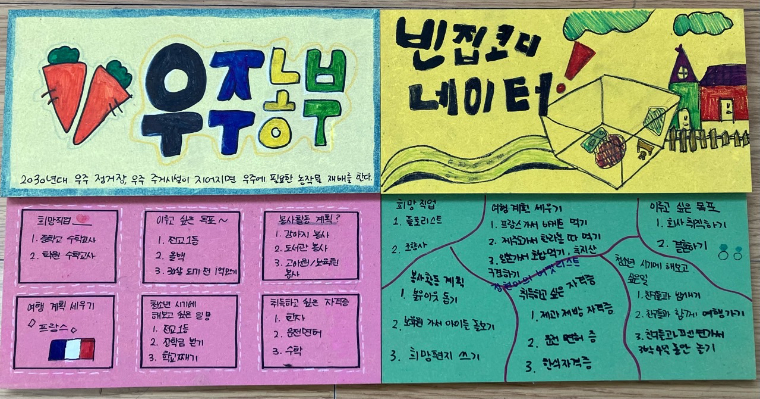 우주농부
2030년대 우주 정거장 우주 주거시설이 지어지면 우주에 필요한 농작물 재배를 한다.
빈집코디
네이터!
희망직업
1. 중학교 수학교사
2. 학원 수학교사
이루고 싶은 목표~
1. 전교 1등
2. 몸짱
봉사활동 계획?
1. 강아지 봉사
2. 도서관 봉사
3. 고아원/노인원
봉사
여행 계획 세우기
프랑스
청소년 시기에
해보고 싶은 일
1. 전교 1등
2. 장학금 받기
3. 학교째기
취득하고 싶은 자격증
1. 한자
2. 운전면허
3. 수학
희망 직업
1. 플로리스트
2.
여행 계획 세우기
1. 프랑스가서 바게트 먹기
2. 제주도가서 한라봉 따 먹기
3.
구경하기
이루고 싶은 목표
1. 회사 취직하기
2. 결혼하기
봉사활동 계획
1.
2. 가서 아이들 돌보기
3. 희망편지 쓰기
버킷리스트
취득하고 싶은 자격증
1. 제과 제빵 자격증
2. 운전 면허 증
3. 한식자격증
청소년 시기에 해보고
싶은일
1. 친구들과
2. 친구들과 함께 여행가기
3. 친구들과
동안 놀기